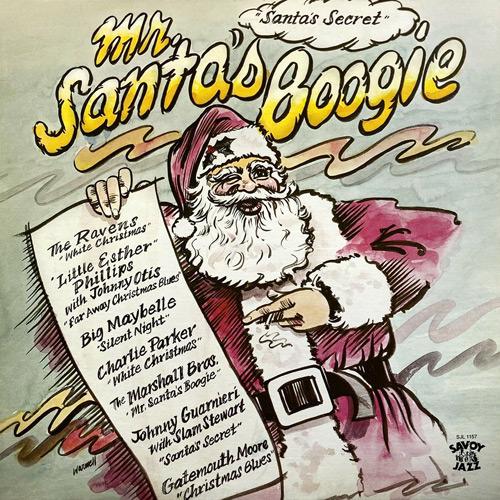 "Santa's Secret"
Mr.
Santa's Boogie
The Ravens
"White Christmas"
"Little Esther"
Phillips
With Johnny Otis
"Far Away Christmas Blues"
Big Maybelle
"Silent Night"
Charlie Parker
"White Christmas"
The Marshall Bros.
"Mr. Santa's Boogie"
Johnny Guarnieri
With Slam Stewart
"Santa's Secret"
Gatemouth Moore
"Christmas Blues"
SJL 1157
SAVOY
JAZZ